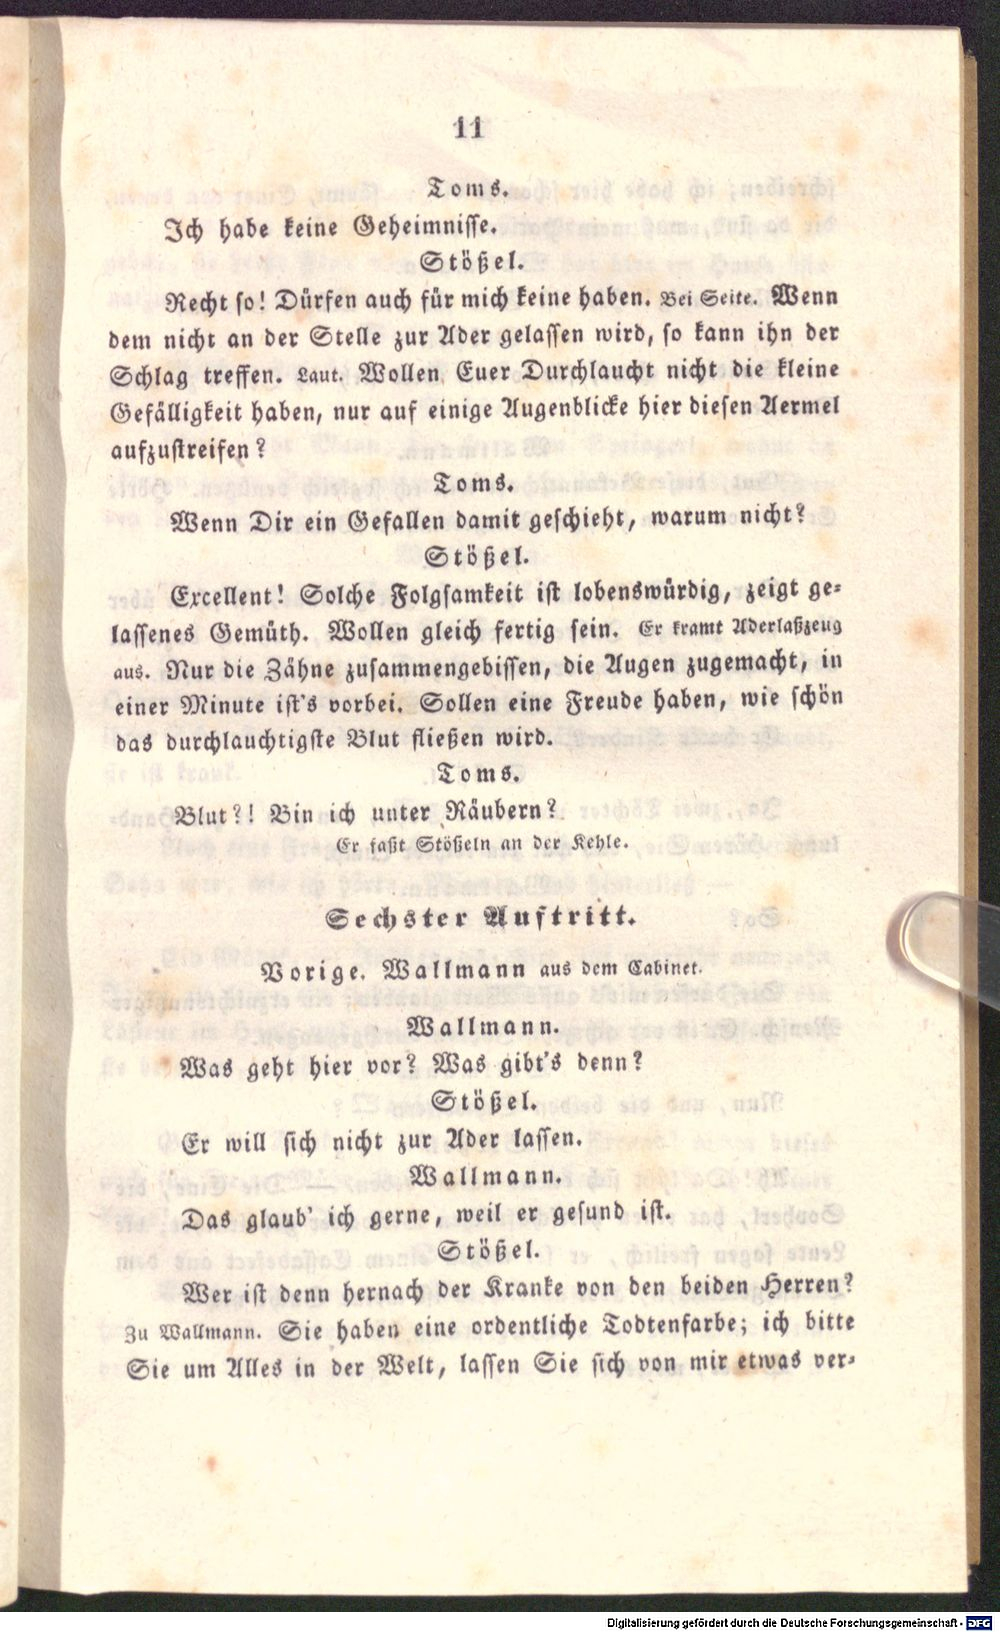 11
Toms.
Ich habe keine Geheimnisse.
Stößel.
Recht so! Dürfen auch für mich keine haben. Bei Seite. Wenn
dem nicht an der Stelle zur Ader gelassen wird, so kann ihn der
Schlag treffen. Laut. Wollen Euer Durchlaucht nicht die kleine
Gefälligkeit haben, nur auf einige Augenblicke hier diesen Aermel
aufzustreifen?
Toms.
Wenn Dir ein Gefallen damit geschieht, warum nicht?
Stößel.
Excellent! Solche Folgsamkeit ist lobenswürdig, zeigt ge-
lassenes Gemüth. Wollen gleich fertig sein. Er kramt Aderlaßzeug
aus. Nur die Zähne zusammengebissen, die Augen zugemacht, in
einer Minute ist's vorbei. Sollen eine Freude haben, wie schön
das durchlauchtigste Blut fließen wird.
Toms.
Blut?! Bin ich unter Räubern?
Er faßt Stößeln an der Kehle.
Sechster Auftritt.
Vorige. Wallmann aus dem Cabinet.
Wallmann.
Was geht hier vor? Was gibt's denn?
Stößel.
Er will sich nicht zur Ader lassen.
Wallmann.
Das glaub' ich gerne, weil er gesund ist.
Stößel.
Wer ist denn hernach der Kranke von den beiden Herren?
Zu Wallmann. Sie haben eine ordentliche Todtenfarbe; ich bitte
Sie um Alles in der Welt, lassen Sie sich von mir etwas ver-
Digitalisierung gefördert durch die Deutsche Forschungsgemeinschaft - DFG